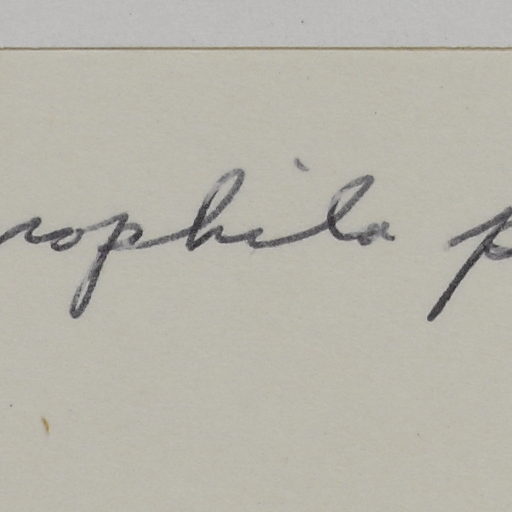 rophila p